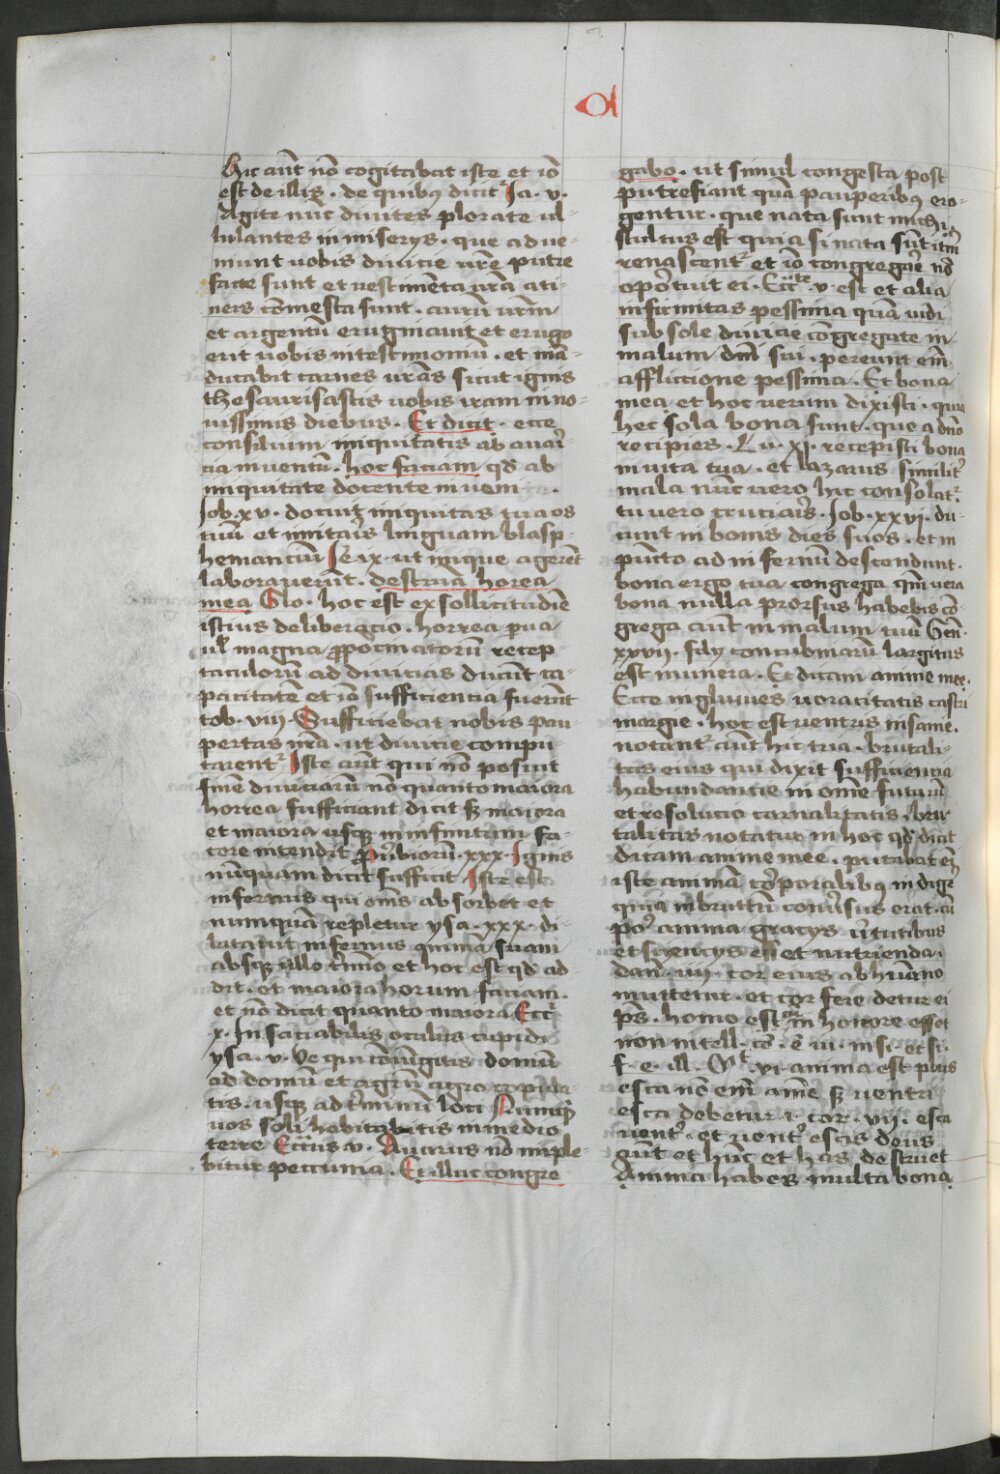 α
Hic aūt nō cogitabat iste et iō
est de illis . de quibꝰ dicit᷑ Ja . v .
Agite nūc diuites plorate ul-
lulantes in miserys . que adue-
niunt uobis diuicie ur̄e putre
facte sunt et uestimenta ur̄a a ti-
neis cōmesta sunt . aurū ur̄m
et argentū eruginauit et erugo
erit uobis in testimoniū . et mā-
ducabit carnes ur̄as sicut ignis
thesaurisastis uobis iram in no-
uissimis diebus . Et dicit . ecce
consilium iniquitatis ab auari
cia inuentū . hoc faciam qd̄ ab
iniquitate docente inueni .
Job . xv . docuit iniquitas tua os
tuū et imitaris linguam blasp-
hemanciū Je ix . ut inique agerēt
laborauerūt . destruā horea
mea Glo . hoc est ex sollicitudīe
istius deliberacio . horrea parua
ul̄ magna propinatorū recep
taculorū ad diuicias dicūt ca-
pacitatē et iō sufficiencia fuerūt
tob . viii . Sufficiebat nobis pau-
pertas nr̄a . ut diuicie compu-
tarent᷑ Iste aūt qui nō posuit
finē diuiciarū nō quanto maiora
horrea sufficiant dicit sꝫ maiora
et maiora usqꝫ in infinitum fa-
cere intendit prouerbiorū . xxx . Ignis
nūquam dicit sufficit Iste est
infernus qui om̄s absorbet et
numquā repletur ysa . xxx . di-
latauit infernus animā suam
absqꝫ ullo t̄mino et hoc est qd̄ ad-
dit . et maiora horum faciam .
et nō dicit quanto maiora Ecc͛
x . Insaciabilis oculus cupidi
ysa . v . Ve qui cōiungitis domū
ad domū et agrū agro copula-
tis . usqꝫ ad t̄minū loci Numqͥd
uos soli habitabitis in medio
terre Ecc͛us v . Auarus nō imple-
bitur peccunia . Et illuc congre
gabo . ut simul congesta post
putrefiant quā pauperibꝰ ero-
gentur . que nata sunt michi
stultus est quia si nata sūt itm̄
renascent᷑ et iō congregar̄e nō
oportuit ei . Ecc͛te . v . est et alia
infirmitas pessima quā uidi
sub sole diuicie cōgregate in
malum dn̄i sui . pereunt em̄
afflictione pessima . Et bona
mea et hoc uerum dixisti . quia
hec sola bona sunt . que a dn̄o
recipies . Lu . xj . recepisti bona
in uita tua . et lazarus similit͛
mala nūc uero hic consolat᷑
tu uero cruciaris . Job . xxvi . du-
cunt in bonis dies suos . et in
pūncto ad infernū descendunt .
bona ergo tua congrega qm̄ uera
bona nulla prorsus habebis cō-
grega aūt in malum tuū Gen̄ .
xxvii . filij concubinarū largitus
est munera . Et dicam anime mee .
Ecce ingluuies uoracitatis castri
margie . hoc est uentris insanie .
notant᷑ aūt hic tria . brutali-
tas eius qui dixit sufficiencia
habundancie in om̄e futurū
et resolucio carnalitatis . bru-
talitas notatur in hoc qd̄ dicit
dicam anime mee . putabat em̄
iste animā corporalibꝰ indige͛
quia in bruttū conuersus erat . cū
poꝰ anima gracys uirtutibus
et sciencys eēt et nutrienda .
dan̄ . iiij . cor eius ab hūano
muttetur . et cor fere detur ei
ps̄ . homo est cū in honore esset
non intell . cō . ē iu . insi . et si .
f . e . ill . Mͭ . vi anima est plus
esca nō em̄ anīe sꝫ uentri
esca debetur . i . cor . vij . esca
uent͛ . et uent͛ escis deus
aūt et hūc et has destruet
Anima habes multa bona